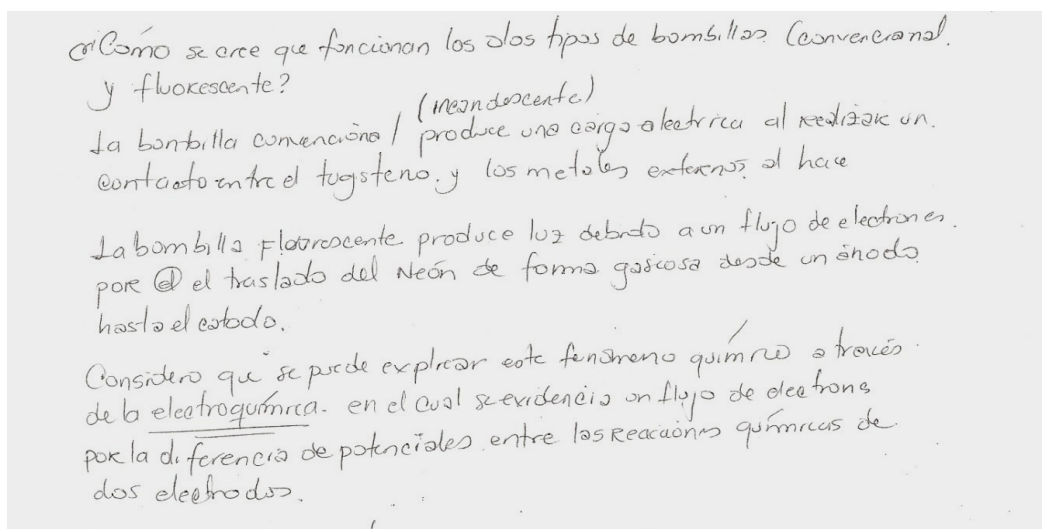 ¿Cómo se cree que funcionan los dos tipos de bombillas? (convencional.
y fluorescente?
(incandescente)
La bombilla convencional produce una carga electrica al realizar un.
contacto entre el tugsteno. y los metales externos, al hace
La bombilla Flourescente produce luz debido a un flujo de electrones.
por el traslado del Neón de forma gaseosa desde un ánodo
hasta el catodo.
Considero que se puede explicar este fenómeno químico a través
de la electroquímica. en el cual se evidencia un flujo de electrons
por la diferencia de potenciales entre las Reacciones químicas de
dos electrodos.